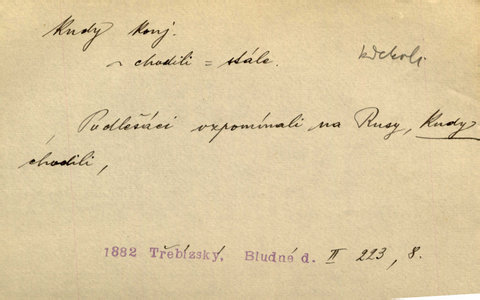 Kudy Konj.
~ chodili = stále.
kdekoli
Podlešáci vzpomínali na Rusy, kudy
chodili,
1882 Třebízský, Bludné d. II 223, 8.